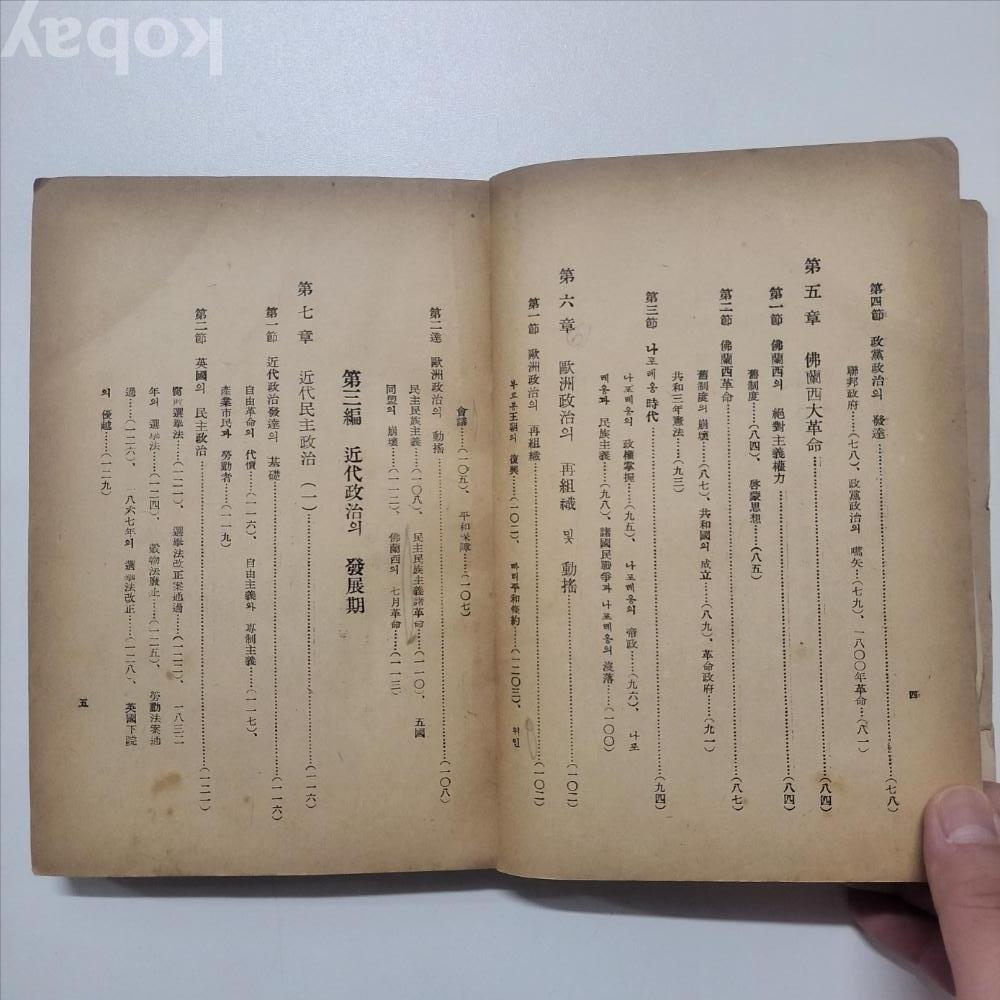 kobay
第四節 政黨政治의 發達……(七八)
聯邦政府……(七八)、政黨政治의 嚆矢…(七九)、一八〇〇年革命…(八一)
第五章 佛蘭西大革命……(八四)
第一節 佛蘭西의 絕對主義權力……(八四)
舊制度……(八四)、啓蒙思想……(八五)
第二節 佛蘭西革命……(八七)
舊制度의 崩壞……(八七)、共和國의 成立……(八九)、革命政府……(九一)
共和三年憲法……(九三)
第三節 나포레옹 時代……(九四)
나포레옹의 政權掌握……(九五)、나포레옹의 帝政……(九六)、나포
레옹과 民族主義……(九八)、諸國民戰爭과 나포레옹의 沒落……(一〇〇)
第六章 歐洲政治의 再組織 및 動搖……(一〇二)
第一節 歐洲政治의 再組織……(一〇二)
부르봉王朝의 復興……(一〇二)、파리平和條約……(一二〇三)、위인
四
會議……(一〇五)、平和保障……(一〇七)
第二節 歐洲政治의 動搖……(一〇八)
民主民族主義……(一〇八)、民主民族主義諸革命……(一一〇)、五國
同盟의 崩壞……(一一二)、佛蘭西의 七月革命……(一一三)
第三編 近代政治의 發展期
第七章 近代民主政治(一)……(一一六)
第一節 近代政治發達의 基礎……(一一六)
自由革命의 代償……(一一六)、自由主義와 專制主義……(一一七)、
產業市民과 勞動者……(一一九)
第二節 英國의 民主政治……(一二一)
腐敗選擧法……(一二一)、選擧法改正案通過……(一二二)、一八三二
年의 選擧法……(一二四)、穀物法廢止……(一二五)、勞動法案通
過……(一二六)、一八六七年의 選擧法改正……(一二八)、英國下院
의 優越……(一二九)
五